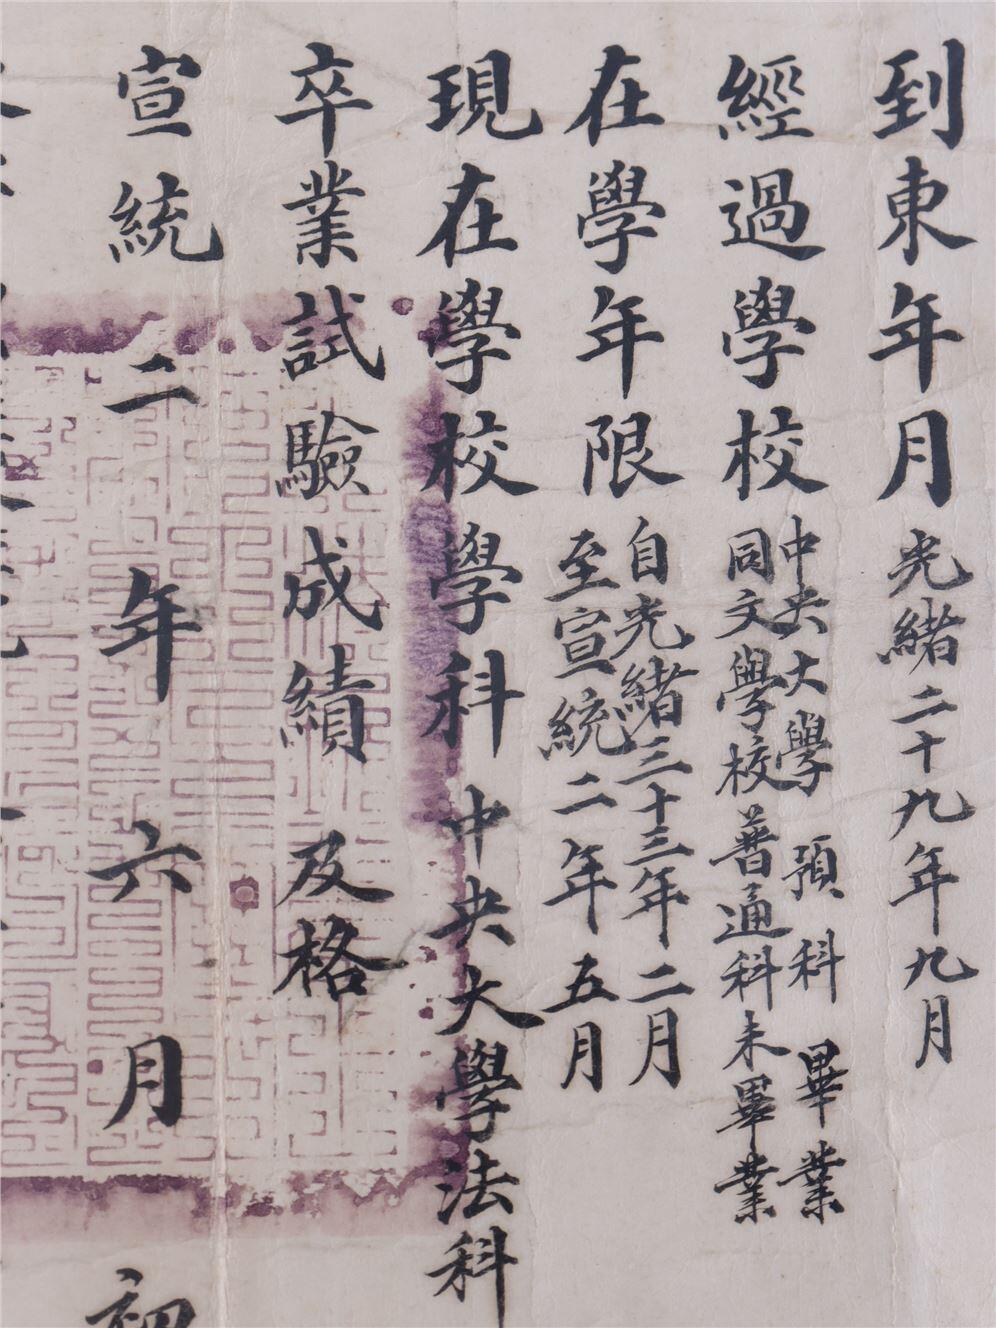 到東年月 光緒二十九年九月
經過學校 中央大學預科畢業
同文學校普通科未畢業
在學年限 自光緒三十三年二月
至宣統二年五月
現在學校學科 中央大學法科
卒業試驗成績 及格
宣統二年六月初